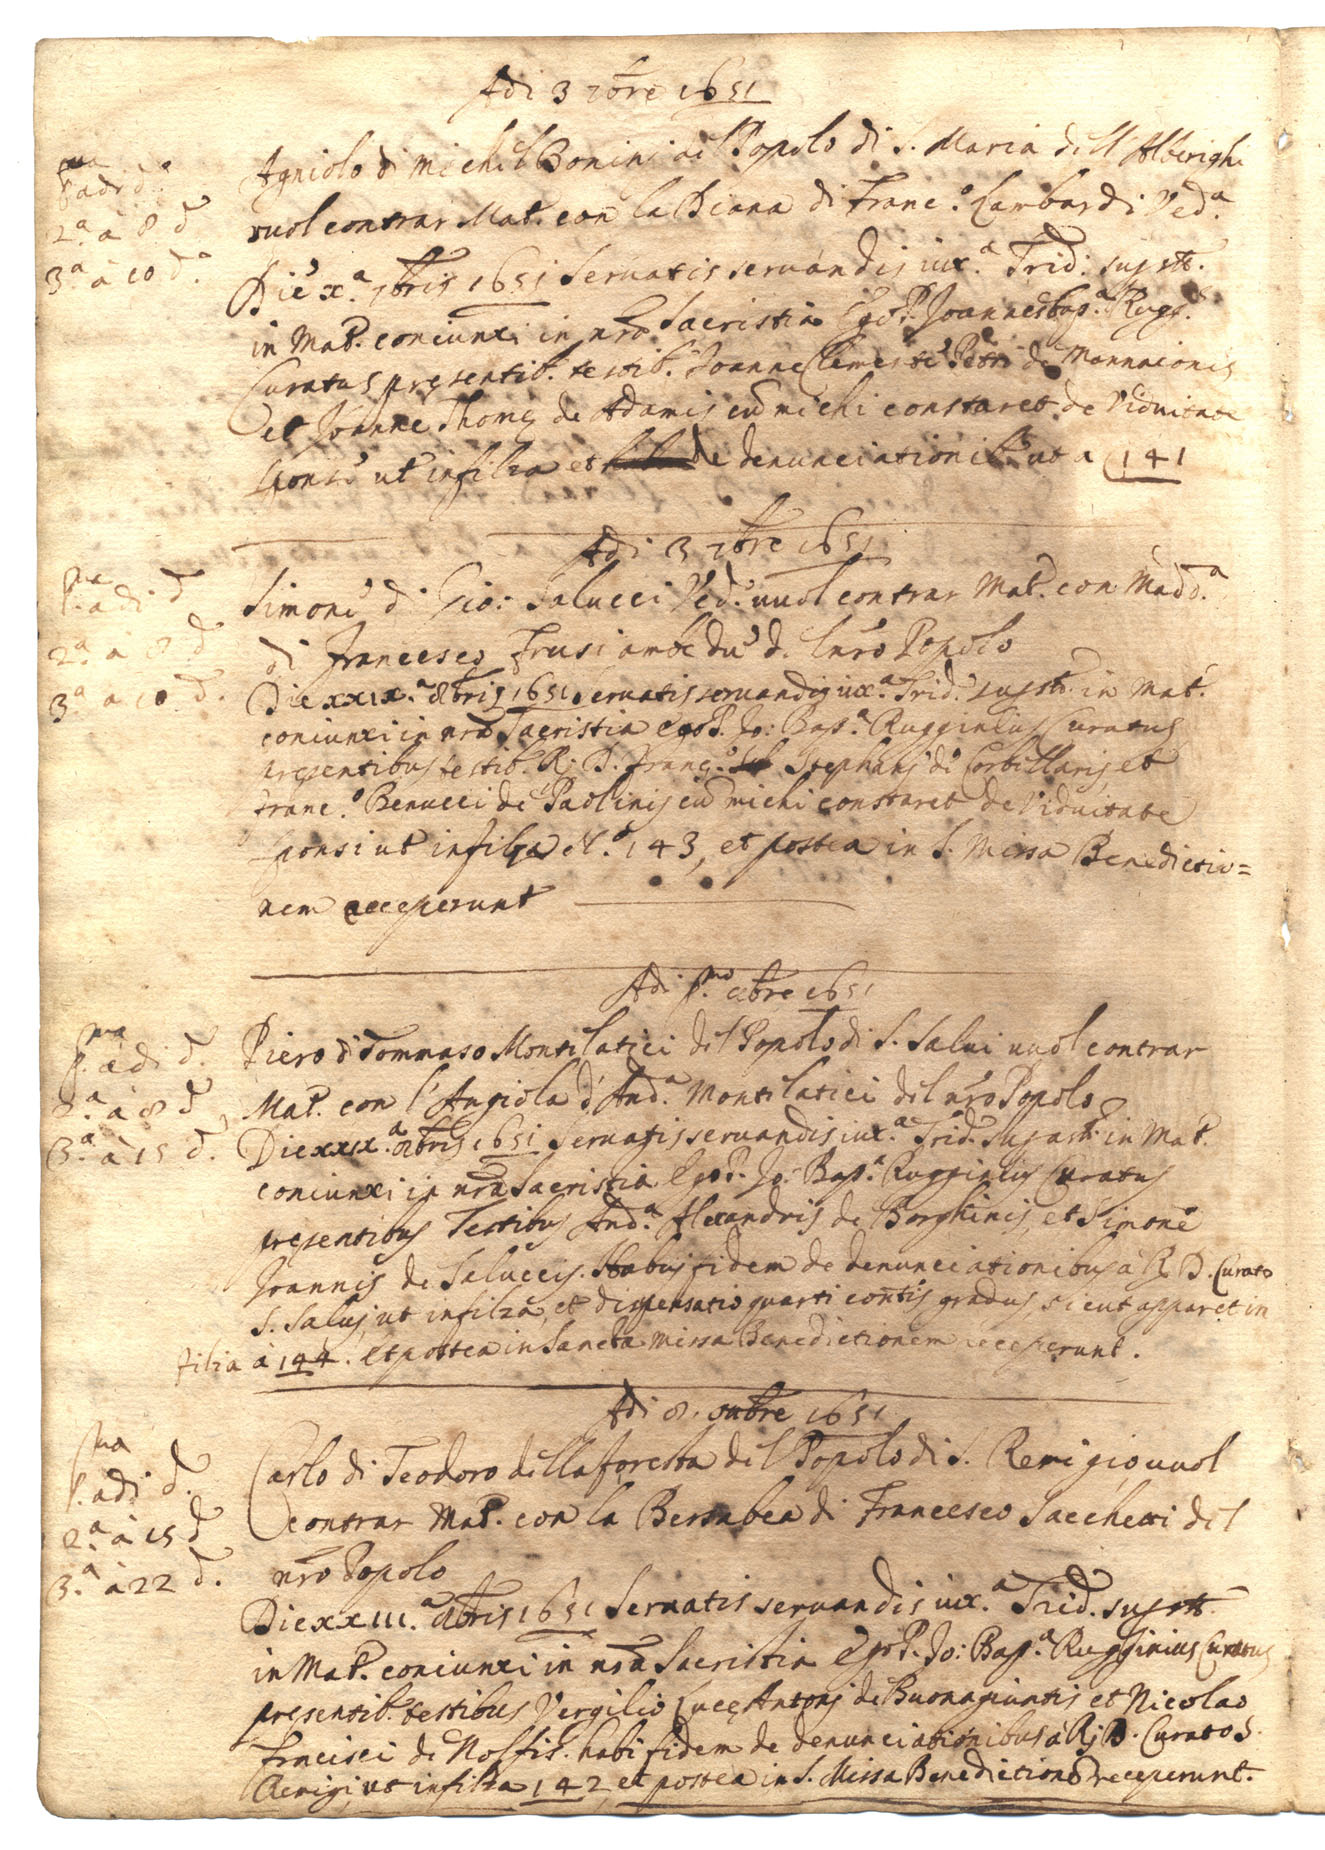 Adi 3 7bre 1651
p.ma adi d.o
2.a à 8 d.o
3.a à 10 d.o
Agniolo di Michel Bonini del Popolo di S. Maria dell Alberighi
vuol contrar Mat.o con la Diana di Franc.o Lambardi Ved.a
Die x.a 7bris 1651 Servatis servandis iux.a Trid:
in Mat.o coniunxi in nrã Sacristia Ego P. Joannesbap.a Rugg.s
Curatus presentib. testib. Joanne Clemente Petri de Mannaionis
et Joanne Thomę de Adamis cũ michi constaret de Viduitate
Sponse ut in filza et de denunciationib. ut a 141
Adi 3 7bre 1651
p.ma adi d.
2.a à 8 d.
3.a à 10 d.
Simone di Gio: Salucci Ved.o vuol contrar Mat.o con Madd.a
di Francesco Frusi amb. du' d. l nr̃o Popolo
Die xxix.a 8bris 1651 Servatis servandis iux.a Trid. in Mat.o
coniunxi in nrã Sacristia Ego P. Jo: Bap.a Ruggerius Curatus
presentibus testib. R. D. Franc.o Stephani de Corbellaris et
Franc.o Benucci de Paolinis cũ michi constaret de Viduitate
Sponsi ut in filza N.o 143, et postea in S. Missa Benedictio=
nem receperunt
Adi p.mo 8bre 1651
p.ma adi d.
2.a à 8 d.
3.a à 15 d.
Piero di Tommaso Montelatici del Popolo di S. Salvi vuol contrar
Mat.o con l'Angiola d'And.a Montelatici del nrõ Popolo
Die xxix.a 8bris 1651 Servatis servandis iux.a Trid. in Mat.o
coniunxi in nrã Sacristia Ego P. Jo: Bap.a Ruggerius Curatus
presentibus Testibus And.a Alexandris de Borghinis, et Simone
Joannis de Saluccis. Habui fidem de denunciationibus à R. D. Curato
S. Salvij, ut in filza, et dispensatio quarti gradus, sicut apparet in
filia à 144. et postea in Sancta missa Benedictionem receperunt.
Adi 8. 8bre 1651
p.ma adi d.
2.a à 15 d
3.a à 22 d.
Carlo di Teodoro della foresta del Popolo di S. Remigio vuol
contrar Mat.o con la Bersabea di Francesco Sacchetti del
nrõ Popolo
Die xxiii.a 8bris 1651 Servatis servandis iux.a Trid.
in Mat.o coniunxi in nrã Sacristia Ego P. Jo: Bap.a Ruggerius Curatus
presentib. testibus Vergilio Lucę Antonij de Buonagiuntis et Nicolao
Francisci de Nolfis. habi fidem de denunciationibus à R. D. Curato S.
Remigi, ut in filza 142, et postea in S. Missa Benedictionẽ receperunt.